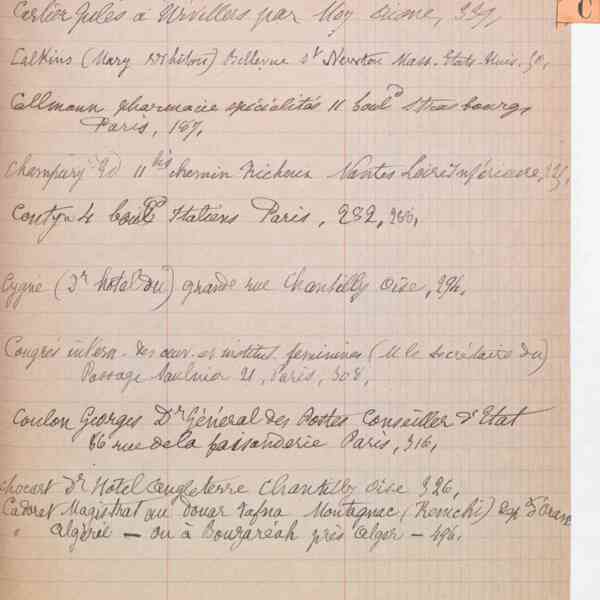 C
Carlier Jules à Urvillers par Moy Aisne, 339,
Calkins (Mary Whiton) Bellevue St Newton Mass. Etats-Unis, 50,
Collmann pharmacie spécialités 11 boul.d Strasbourg,
Paris, 187,
Champury Ed 11 bis chemin Nantes Loire Inférieure,
Conty 4 boul.d Italiens Paris, 282, 286,
Cygne (Dr hotel du) grande rue Chantilly Oise, 294,
Congrès intern. des œuv. et institut. féminines (M le secrétaire du)
Passage Saulnier 21, Paris, 308,
Coulon Georges Dr Général des Postes Conseiller d'Etat
66 rue de la faisanderie Paris, 316,
Chocart Dr Hotel Angleterre Chantilly Oise 326,
Cadoret Magistrat au douar Tafna Montagnac (Remchi) Dep. d'Oran
" Algérie — ou à Bouzaréah près Alger — 496,